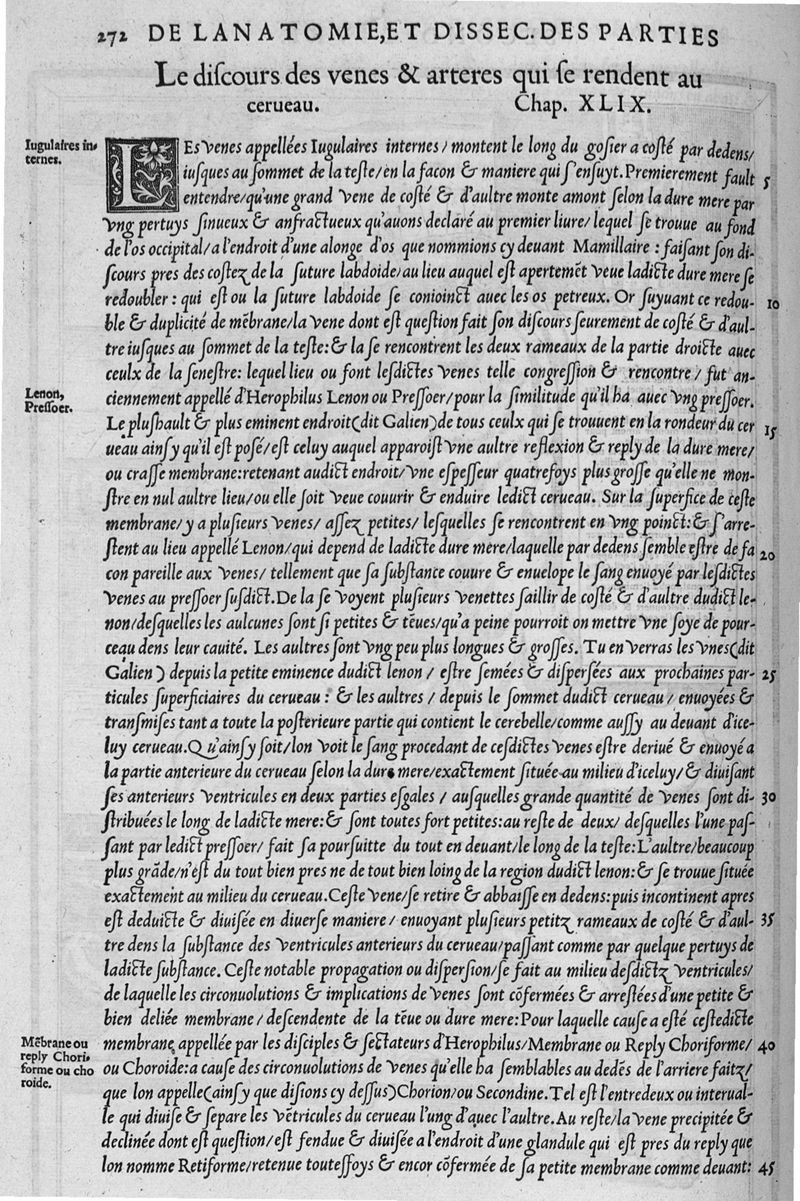 272 DE LANATOMIE, ET DISSEC. DES PARTIES
Le discours des venes & arteres qui se rendent au
cerueau. Chap. XLIX.
Iugulaires in-
ternes.
LEs venes appellées Iugulaires internes/ montent le long du gosier a costé par dedens/
iusques au sommet de la teste/en la facon & maniere qui s'ensuyt. Premierement fault 5
entendre/qu'une grand vene de costé & d'aultre monte amont selon la dure mere par
vng pertuys sinueux & anfractueux qu'auons declaré au premier liure/ lequel se trouue au fond
de l'os occipital/a l'endroit d'une alonge d'os que nommions cy deuant Mamillaire : faisant son di-
scours pres des costez de la suture labdoide/au lieu auquel est apertemẽt veue ladicte dure mere se
redoubler : qui est ou la suture labdoide se conioinct auec les os petreux. Or suyuant ce redou- 10
ble & duplicité de mẽbrane/la vene dont est question fait son discours seurement de costé & d'aul-
tre iusques au sommet de la teste:& la se rencontrent les deux rameaux de la partie droicte auec
ceulx de la senestre: lequel lieu ou font lesdictes venes telle congression & rencontre/ fut an-
Lenon,
Pressoer.
ciennement appellé d'Herophilus Lenon ou Pressoer/pour la similitude qu'il ha auec vng pressoer.
Le plushault & plus eminent endroit(dit Galien)de tous ceulx qui se trouuent en la rondeur du cer 15
ueau ainsy qu'il est posé/est celuy auquel apparoist vne aultre reflexion & reply de la dure mere/
ou crasse membrane:retenant audict endroit/vne espesseur quatrefoys plus grosse qu'elle ne mon-
stre en nul aultre lieu/ou elle soit veue couurir & enduire ledict cerueau. Sur la superfice de ceste
membrane/y a plusieurs venes/ assez petites/ lesquelles se rencontrent en vng poinct:& s'arre-
stent au lieu appellé Lenon/qui depend de ladicte dure mere/laquelle par dedens semble estre de fa 20
con pareille aux venes/ tellement que sa substance couure & enuelope le sang enuoyé par lesdictes
venes au pressoer susdict.De la se voyent plusieurs venettes saillir de costé & d'aultre dudict le-
non/desquelles les aulcunes sont si petites & tẽues/qu'a peine pourroit on mettre vne soye de pour-
ceau dens leur cauité. Les aultres sont vng peu plus longues & grosses. Tu en verras les vnes(dit
Galien) depuis la petite eminence dudict lenon / estre semées & dispersées aux prochaines par- 25
ticules superficiaires du cerueau : & les aultres / depuis le sommet dudict cerueau / enuoyées &
transmises tant a toute la posterieure partie qui contient le cerebelle/comme aussy au deuant d'ice-
luy cerueau.Qu'ainsy soit/lon voit le sang procedant de cesdictes venes estre deriué & enuoyé a
la partie anterieure du cerueau selon la dure mere/exactement située au milieu d'iceluy/& diuisant
ses anterieurs ventricules en deux parties esgales / ausquelles grande quantité de venes sont di- 30
stribuées le long de ladicte mere:& sont toutes fort petites:au reste de deux/ desquelles l'une pas-
sant par ledict pressoer/ fait sa poursuitte du tout en deuant/le long de la teste:L'aultre/beaucoup
plus grãde/n'est du tout bien pres ne de tout bien loing de la region dudict lenon:& se trouue située
exactement au milieu du cerueau.Ceste vene/se retire & abbaisse en dedens:puis incontinent apres
est deduicte & diuisée en diuerse maniere/ enuoyant plusieurs petitz rameaux de costé & d'aul- 35
tre dens la substance des ventricules anterieurs du cerueau/passant comme par quelque pertuys de
ladicte substance. Ceste notable propagation ou dispersion/se fait au milieu desdictz ventricules/
de laquelle les circonuolutions & implications de venes sont cõfermées & arrestées d'une petite &
bien deliée membrane/ descendente de la tẽue ou dure mere:Pour laquelle cause a esté cestedicte
Mẽbrane ou
reply Chori-
forme ou cho
roide.
membrane appellée par les disciples & sectateurs d'Herophilus/Membrane ou Reply Choriforme/ 40
ou Choroide:a cause des circonuolutions de venes qu'elle ha semblables au dedẽs de l'arriere faitz/
que lon appelle(ainsy que disions cy dessus)Chorion/ou Secondine.Tel est l'entredeux ou interual-
le qui diuise & separe les vẽtricules du cerueau l'ung d'auec l'aultre.Au reste/la vene precipitée &
declinée dont est question/est fendue & diuisée a l'endroit d'une glandule qui est pres du reply que
lon nomme Retiforme/retenue toutessoys & encor cõfermée de sa petite membrane comme deuant: 45